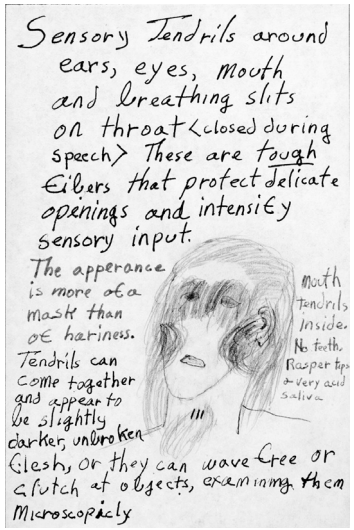 Sensory Tendrils around
ears, eyes, mouth
and breathing slits
on throat <closed during
speech> These are tough
fibers that protect delicate
openings and intensify
sensory input.
The apperance
is more of a
mask than
of hariness.
Tendrils can
come together
and appear to
be slightly
darker, unbroken
flesh, or they can wave free or
clutch at objects, examining them
microscopicly
Mouth
tendrils
inside.
No teeth.
Rasper tips
+ very acid
saliva